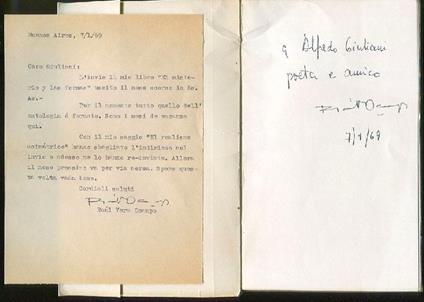 Buenos Aires, 7/1/69
Caro Giuliani:
L'invio il mio libro "El miste-
rio y las formas" uscito il mese scorso in Bs.
As.-
Per il momento tutto quello dell'
antologia é fermato. Sono i mesi de vacanze
qui.
Con il mio saggio "El realismo
asimétrico" hanno sbagliato l'indirizzo nel
invio e adesso me lo hanno re-inviato. Allora
il mese prossimo va per via aerea. Spero ques-
ta volta vada bene.
Cordiali saluti
Raúl Vera Ocampo
a Alfredo Giuliani
poeta e amico
7/1/69